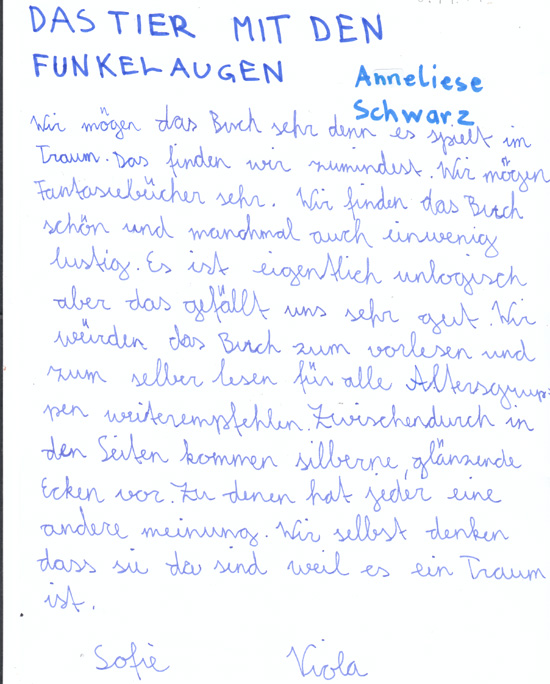 DAS TIER MIT DEN
FUNKELAUGEN
Anneliese
Schwarz
Wir mögen das Buch sehr denn es spielt im
Traum. Das finden wir zumindest. Wir mögen
Fantasiebücher sehr. Wir finden das Buch
schön und manchmal auch einwenig
lustig. Es ist eigentlich unlogisch
aber das gefällt uns sehr gut. Wir
würden das Buch zum vorlesen und
zum selber lesen für alle Altersgrup=
pen weiterempfehlen. Zwischendurch in
den Seiten kommen silberne, glänzende
Ecken vor. Zu denen hat jeder eine
andere meinung. Wir selbst denken
dass sie da sind weil es ein Traum
ist.
Sofie Viola